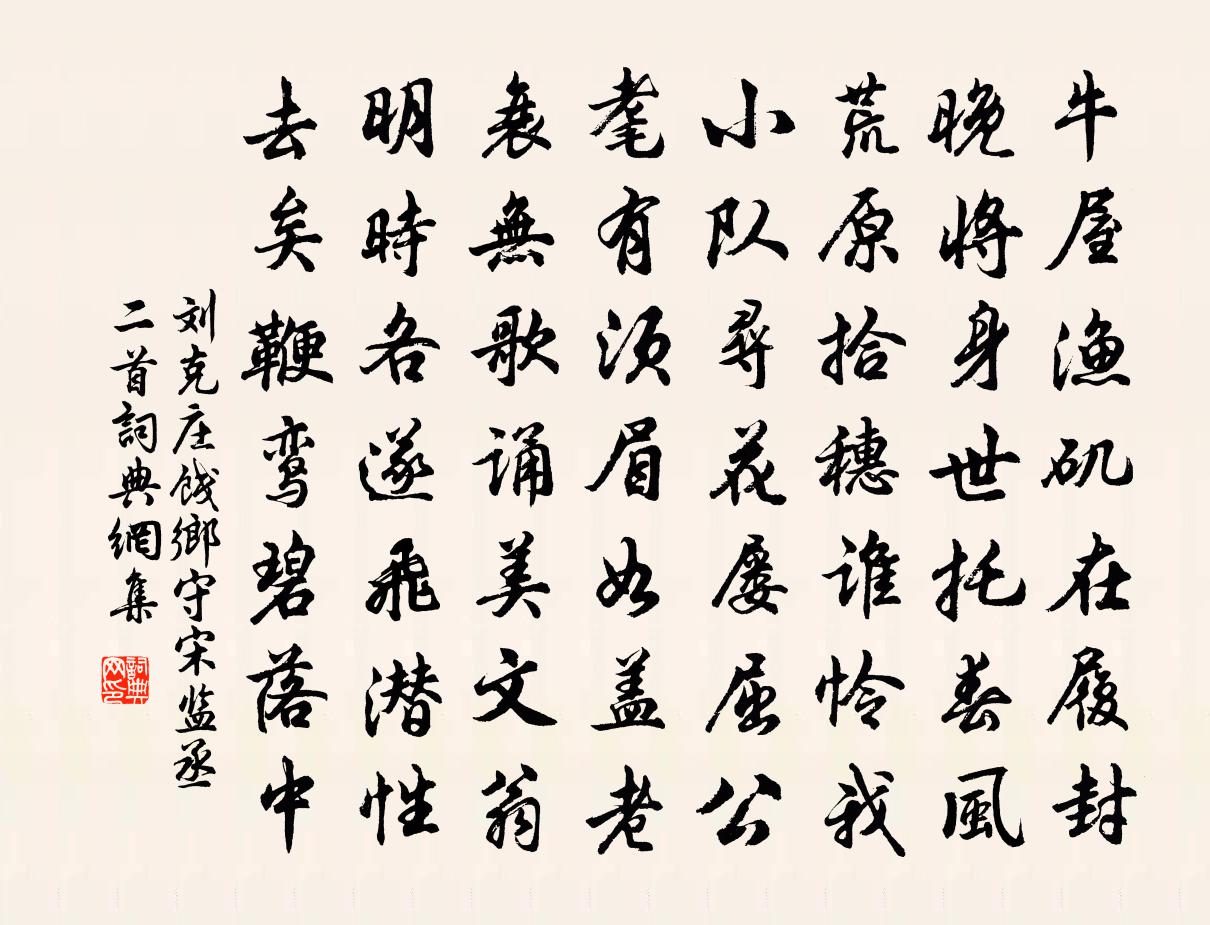 牛屋渔矶在履封
晚将身世托春風
荒原拾穗谁怜我
小队尋花屡屈公
耄有须眉如盖老
衰無歌诵美文翁
明時各遂飛潜性
去矣鞭鸾碧落中
刘克庄饯鄉守宋监丞
二首詞典網集
詞典网印